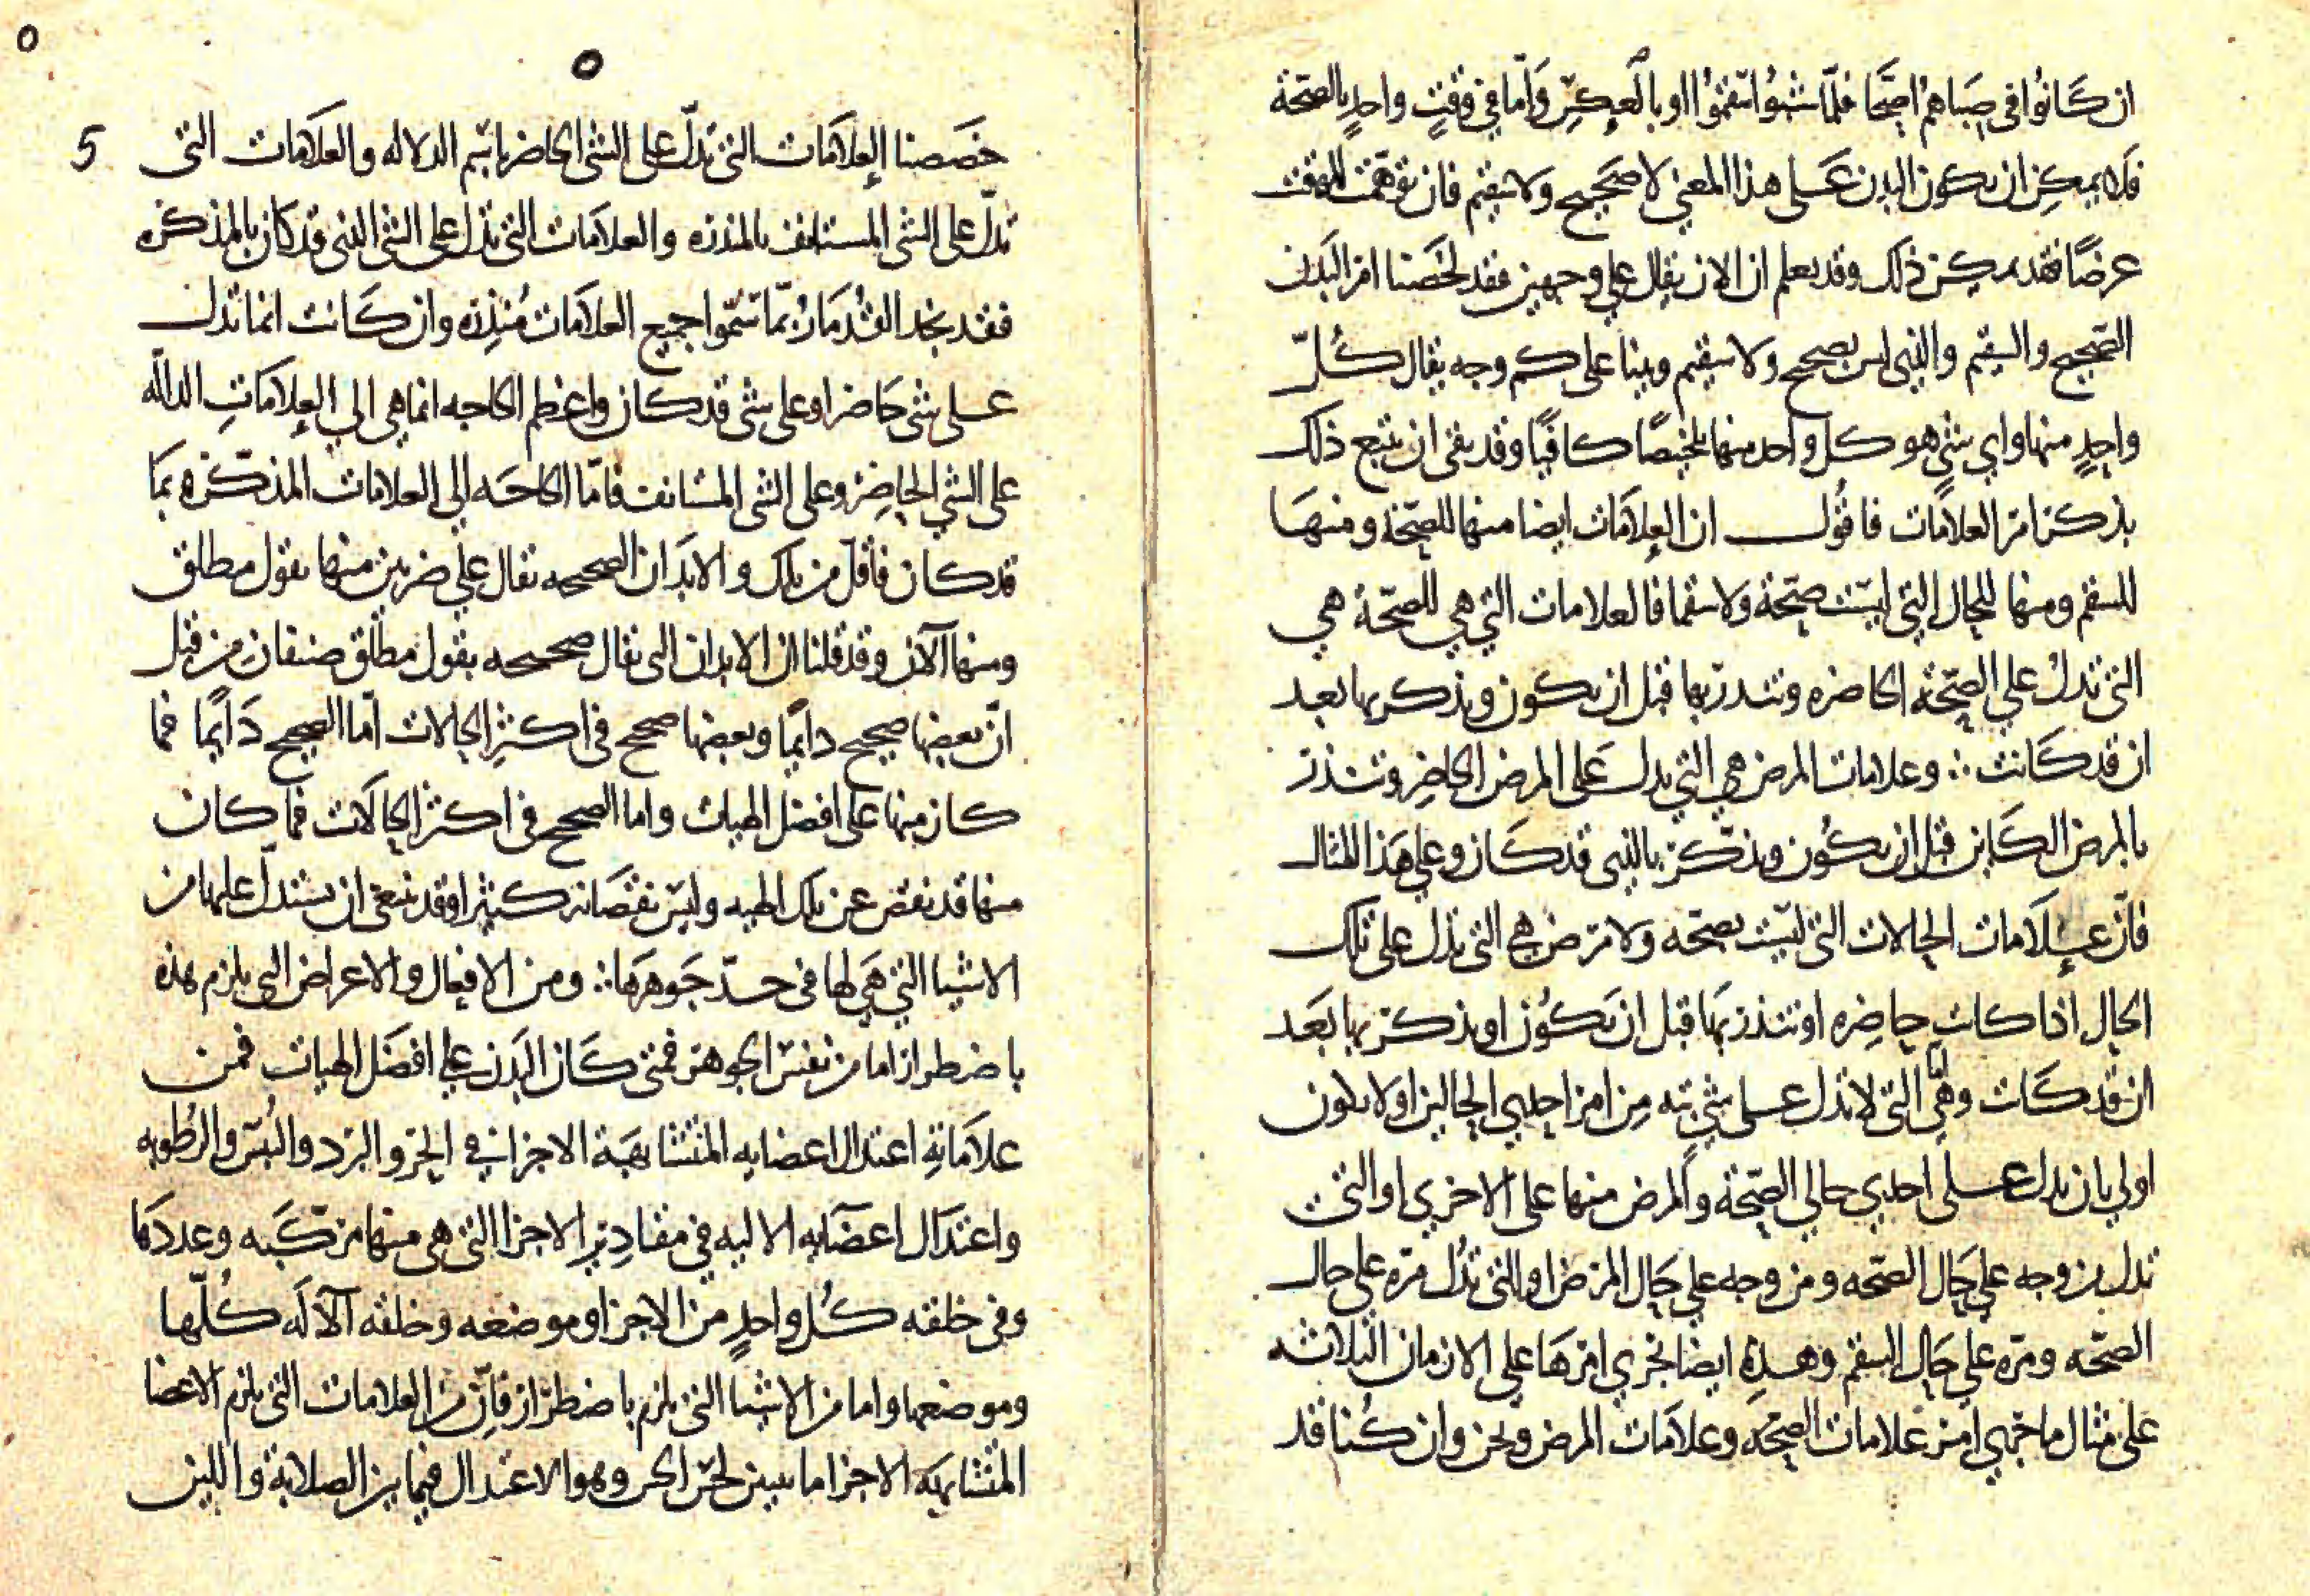 ان كانوا في صباهم اصحا فلما شبوا سقموا او بالعكس واما في وقت واحد بالصحة
فلا يمكن ان يكون البدن على هذا المعنى لا صحيح ولا سقيم فان توهمت الوقت
عرضا فقد يمكن ذلك وقد يعلم ان الان يقال على وجهين فقد لخصنا امر البدن
الصحيح والسقيم والذي ليس بصحيح ولا سقيم وبينا على كم وجه يقال كل
واحد منها واي شي هو كل واحد منها تلخيصا كافيا وقد بقى ان نتبع ذلك
بذكر امر العلامات فاقول ان العلامات ايضا منها للصحة ومنها
للسقم ومنها للحال التي ليست صحة ولا سقما فالعلامات التي هي للصحة هي
التي تدل على الصحة الحاضره وتنذر بها قبل ان تكون وتذكر بها بعد
ان قد كانت ∴ وعلامات المرض هي التي تدل على المرض الحاضر وتنذر
بالمرض الكاين قبل ان يكون وتذكر بالذي قد كان وعلى هذا المثال
فان علامات الحالات التي ليست بصحه ولا مرض هي التي تدل على تلك
الحال اذا كانت حاضره او تنذر بها قبل ان تكون او تذكر بها بعد
ان قد كانت وهي التي لا تدل على شي بته من امر احدى الحالين او لا تكون
اولى بان تدل على احدى حالي الصحة والمرض منها على الاخرى او التي
تدل من وجه على حال الصحه ومن وجه على حال المرض او التي تدل مره على حال
الصحه ومره على حال السقم وهذه ايضا تجري امرها على الازمان الثلاثه
على مثال ما تجري امر علامات الصحه وعلامات المرض ونحن وان كنا قد
٥
٥
5
خصصنا العلامات التي تدل على الشي الحاضر باسم الدلاله والعلامات التي
تدل على الشي المستانف بالمنذره والعلامات التي تدل على الشي الذي قد كان بالمذكره
فقد نجد القدما ربما سموا جميع العلامات منذره وان كانت انما تدل
على شي حاضر او على شي قد كان واعظم الحاجه انما هي الى العلامات الداله
على الشي الحاضر وعلى الشي المستانف فاما الحاجه الى العلامات المذكره بما
قد كان فاقل من تلك والابدان الصحيحه تقال على ضربين منها بقول مطلق
ومنها الآن وقد قلنا ان الابدان التي تقال صحيحه بقول مطلق صنفان من قبل
ان بعضها صحيح دايما وبعضها صحيح في اكثر الحالات اما الصحيح دايما فما
كان منها على افضل الهيات واما الصحيح في اكثر الحالات فما كان
منها قد نقص عن تلك الهيه وليس نقصانه كثيرا وقد ينبغي ان يستدل عليها من
الاشيا التي هي لها في حد جوهرها ∴ ومن الافعال والاعراض التي يلزم هذه
باضطرار اما من نفس الجوهر فمتى كان البدن على افضل الهيات فمن
علاماته اعتدال اعضايه المتشابهة الاجزا في الحر والبرد واليبس والرطوبه
واعتدال اعضايه الاليه في مقادير الاجزا التي هي منها مركبه وعددها
وفي خلقه كل واحد من الاجزا وموضعه وخلقه الآله كلها
وموضعها واما من الاشيا التي يلزم باضطرار فان من العلامات التي يلزم الاعضا
المتشابهه الاجزا ما يبين لحس وهو الاعتدال فيما بين الصلابة واللين